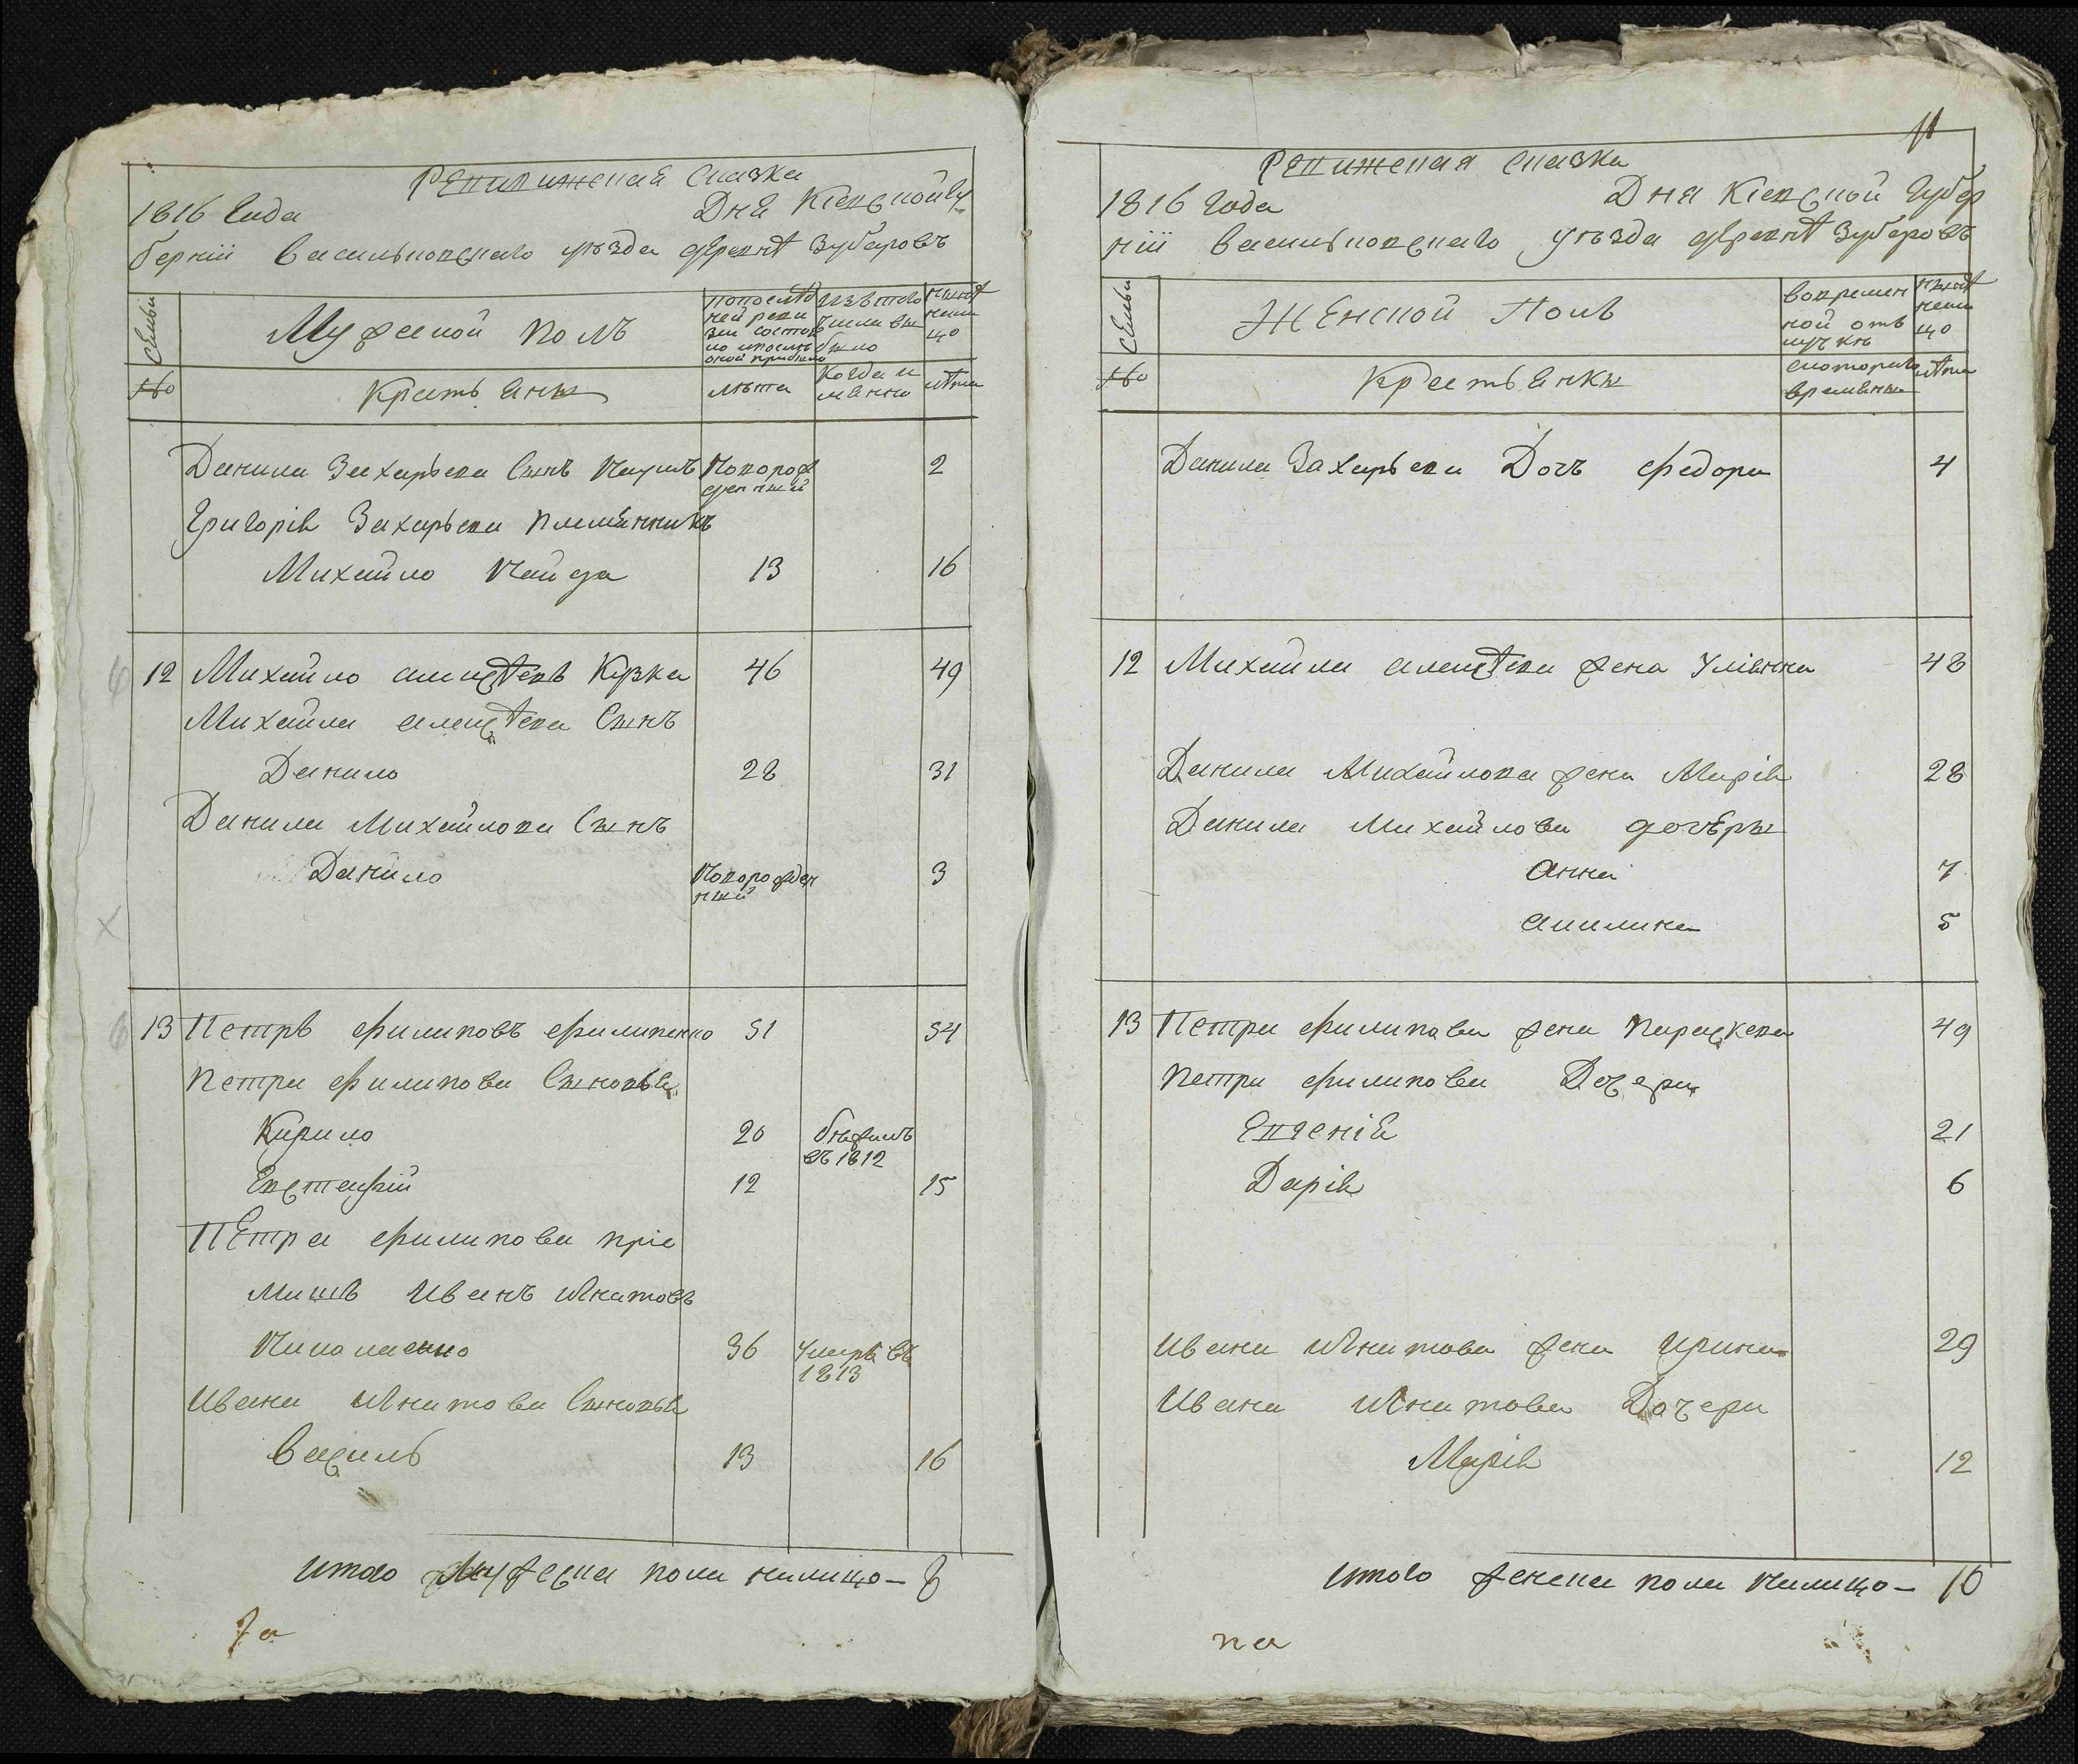 Ревижская сказка
1816 Года Дня Кіевской Гу
берніи васильковскаго уѣзда деревнѣ Зубаровъ
Семьи
Мужеской полъ
попослѣд
ней реви
зіи состоя
ло ипослѣ
оной прибыло
изъ того
числа вы
было
нынѣ
нали
цо
№
Крестьяне
лѣта
Когда и
мянно
лѣта
Данила Захарьева Сынъ Павилъ Новорож
денный 2
Григорія Захарьева племянникъ
Михайло Чайда 13 16
12 Михайло алексѣевъ Кузка 46 49
Михайла алексѣева Сынъ
Данило 28 31
Данила Михайлова Сынъ
Данило Новорожден
ный 3
13 Петръ филиповъ филипенко 51 54
Петра филипова Сыновья
Кирило 20 бѣжалъ
въ 1812
Евстафій 12 15
Петра филипова пріе
мышъ Иванъ Игнатовъ
36 умеръ въ
1813
Ивана Игнатова Сыновья
василь 13 16
итого Мужеска пола налицо – 8
11
Ревижская сказка
1816 Года Дня Кіевской Губер
ніи васильковскаго уѣзда деревнѣ Зубаровъ
Семьи
Женской Полъ
вовремен
ной отъ
лучкѣ
нынѣ
нали
цо
№
Крестьянки
скоторого
времяни
лѣта
Данила Захарьева Дочъ федора 4
12 Михайла алексѣева жена Улiянна 48
Данила Михайлова жена Марія 28
Данила Михайлова дочеры
Анна 7
акилина 5
13 Петра филипова жена параскева 49
Петра филипова Дочери
Евгенія 21
Дарія 6
Ивана Игнатова жена Ирина 29
Ивана Игнатова Дочери
Марія 12
итого женска пола налицо – 10
на